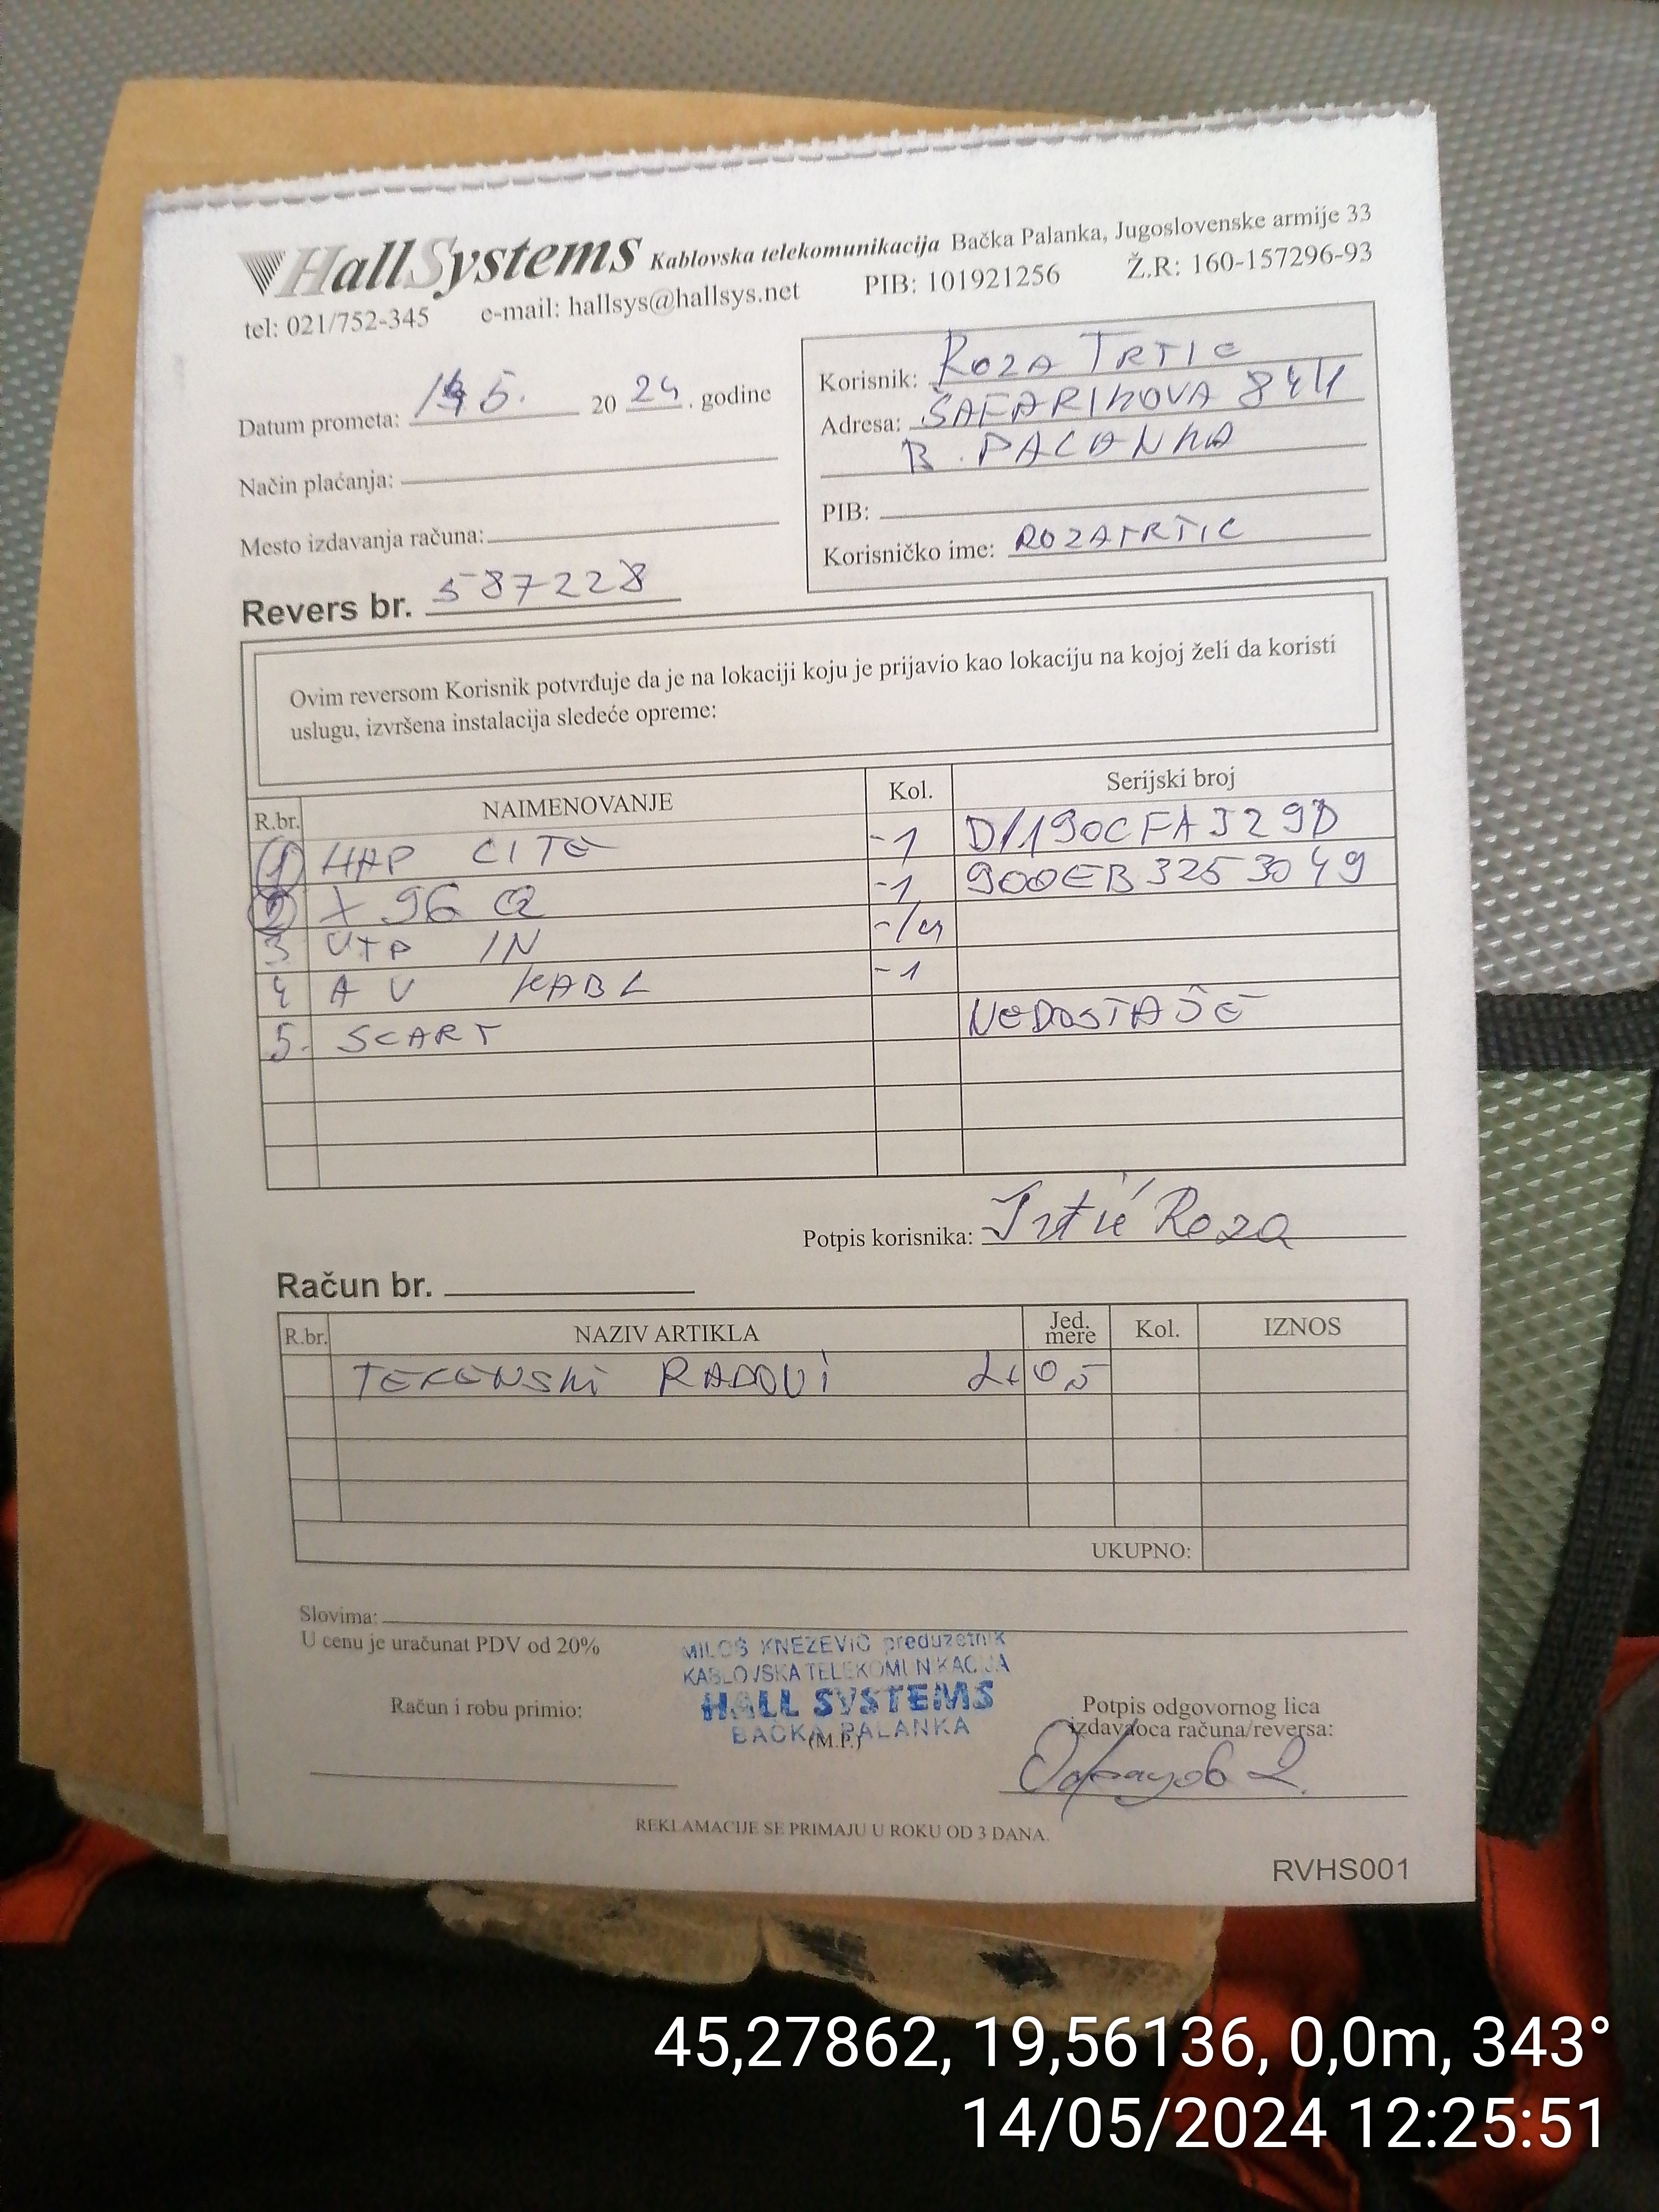 HallSystems Kablovska telekomunikacija Bačka Palanka, Jugoslovenske armije 33
tel: 021/752-345 e-mail: hallsys@hallsys.net PIB: 101921256 Ž.R: 160-157296-93
Datum prometa: 14 5. 2024. godine
Način plaćanja:
Mesto izdavanja računa:
Revers br. 587228
Korisnik: ROZA TRTIC
Adresa: ŠAFARIKOVA 84/1
B. PALANKA
PIB:
Korisničko ime: ROZATRTIC
Ovim reversom Korisnik potvrđuje da je na lokaciji koju je prijavio kao lokaciju na kojoj želi da koristi
uslugu, izvršena instalacija sledeće opreme:
R.br. NAIMENOVANJE Kol. Serijski broj
1 HAP LITE -1 D1190CFA329D
2 X96 Q -1 900EB3253049
3 UTP IN
4 AV KABL -1
5. SCART NEDOSTAJE
Potpis korisnika: Trtić Roza
Račun br.
R.br. NAZIV ARTIKLA Jed. mere Kol. IZNOS
TERENSKI RADOVI
UKUPNO:
Slovima:
U cenu je uračunat PDV od 20%
MILOŠ KNEŽEVIĆ preduzetnik
KABLOVSKA TELEKOMUNIKACIJA
HALL SYSTEMS
BAČKA PALANKA
(M.P.)
Račun i robu primio:
Potpis odgovornog lica
izdavaoca računa/reversa:
REKLAMACIJE SE PRIMAJU U ROKU OD 3 DANA.
RVHS001
45,27862, 19,56136, 0,0m, 343°
14/05/2024 12:25:51